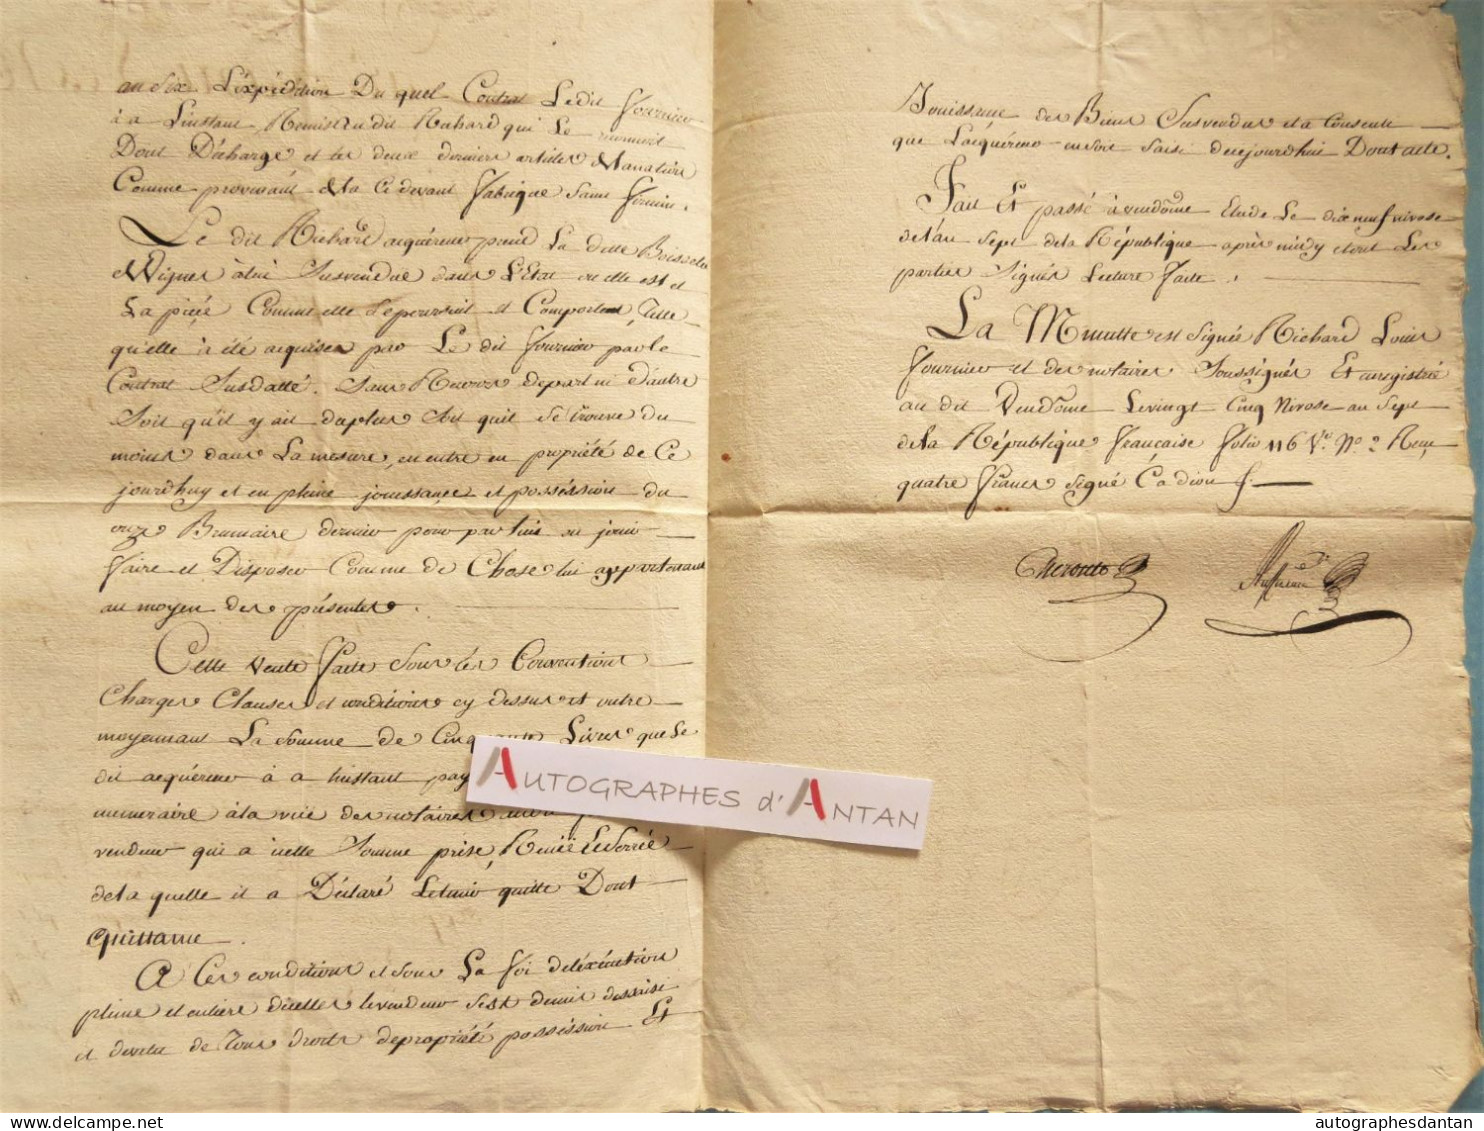 au Six L'expédition Du quel Contrat Ledit fournier
à a Linstant Remis audit Richard qui Le
Dont Décharge et les deux derniers articles
Comme provenant de la Cidevant fabrique Saint firmin.
Le dit Richard acquéreur prend La dette Boisselée
de Vignes à lui Susvendue dans L'Etat ou elle est et
La pièce Comme elle Sepoursuit et Comporte, Telle
qu'elle à été acquise par Le dit fournier par le
Contrat Susdatté. Sans Recours depart ni d'autre
Soit qu'il y ait duplus Soit quil Se trouve du
moins dans La mesure, en entre en propriété de Ce
jourdhuy et en pleine jouissance et posséssion du
onze Brumaire dernier pour par lui en jouir
faire et Disposer Comme de Chose lui appartenant
au moyen des présentes.
Cette Vente faite Sous les Conventions
Charges Clauses et conditions cy dessus et outre
moyennant La Somme de Cinquante Livres que Le
dit acquéreur à a linstant pay
numeraire à la vüe des notaires
vendeur qui a icelle Somme prise,
de la quelle il a Déclaré Letenir quitte Dont
Quittance.
A Ces conditions et sous La foi deléxécution
pleine et entière dicelles levendeur Sest demis dessaisi
et devetu de Tous droits depropriété posséssion Et
Jouissance des Biens Susvendus et a Consenti
que Lacquéreur en soit Saisi decejourdhui Dont acte.
Fait Et passé à vendôme Etude Le dix neuf nivose
de l'an Sept de la République après midy et ont Les
parties Signés Lecture faite.
La Minutte est Signée Richard Louis
fournier et des notaires Soussignés Et enregistré
au dit Vendôme Le vingt Cinq Nivose an Sept
de la République française folio 116 V.° N.° 2 Reçu
quatre francs Signé Cadion
AUTOGRAPHES d'ANTAN
delcampe.net
autographesdantan